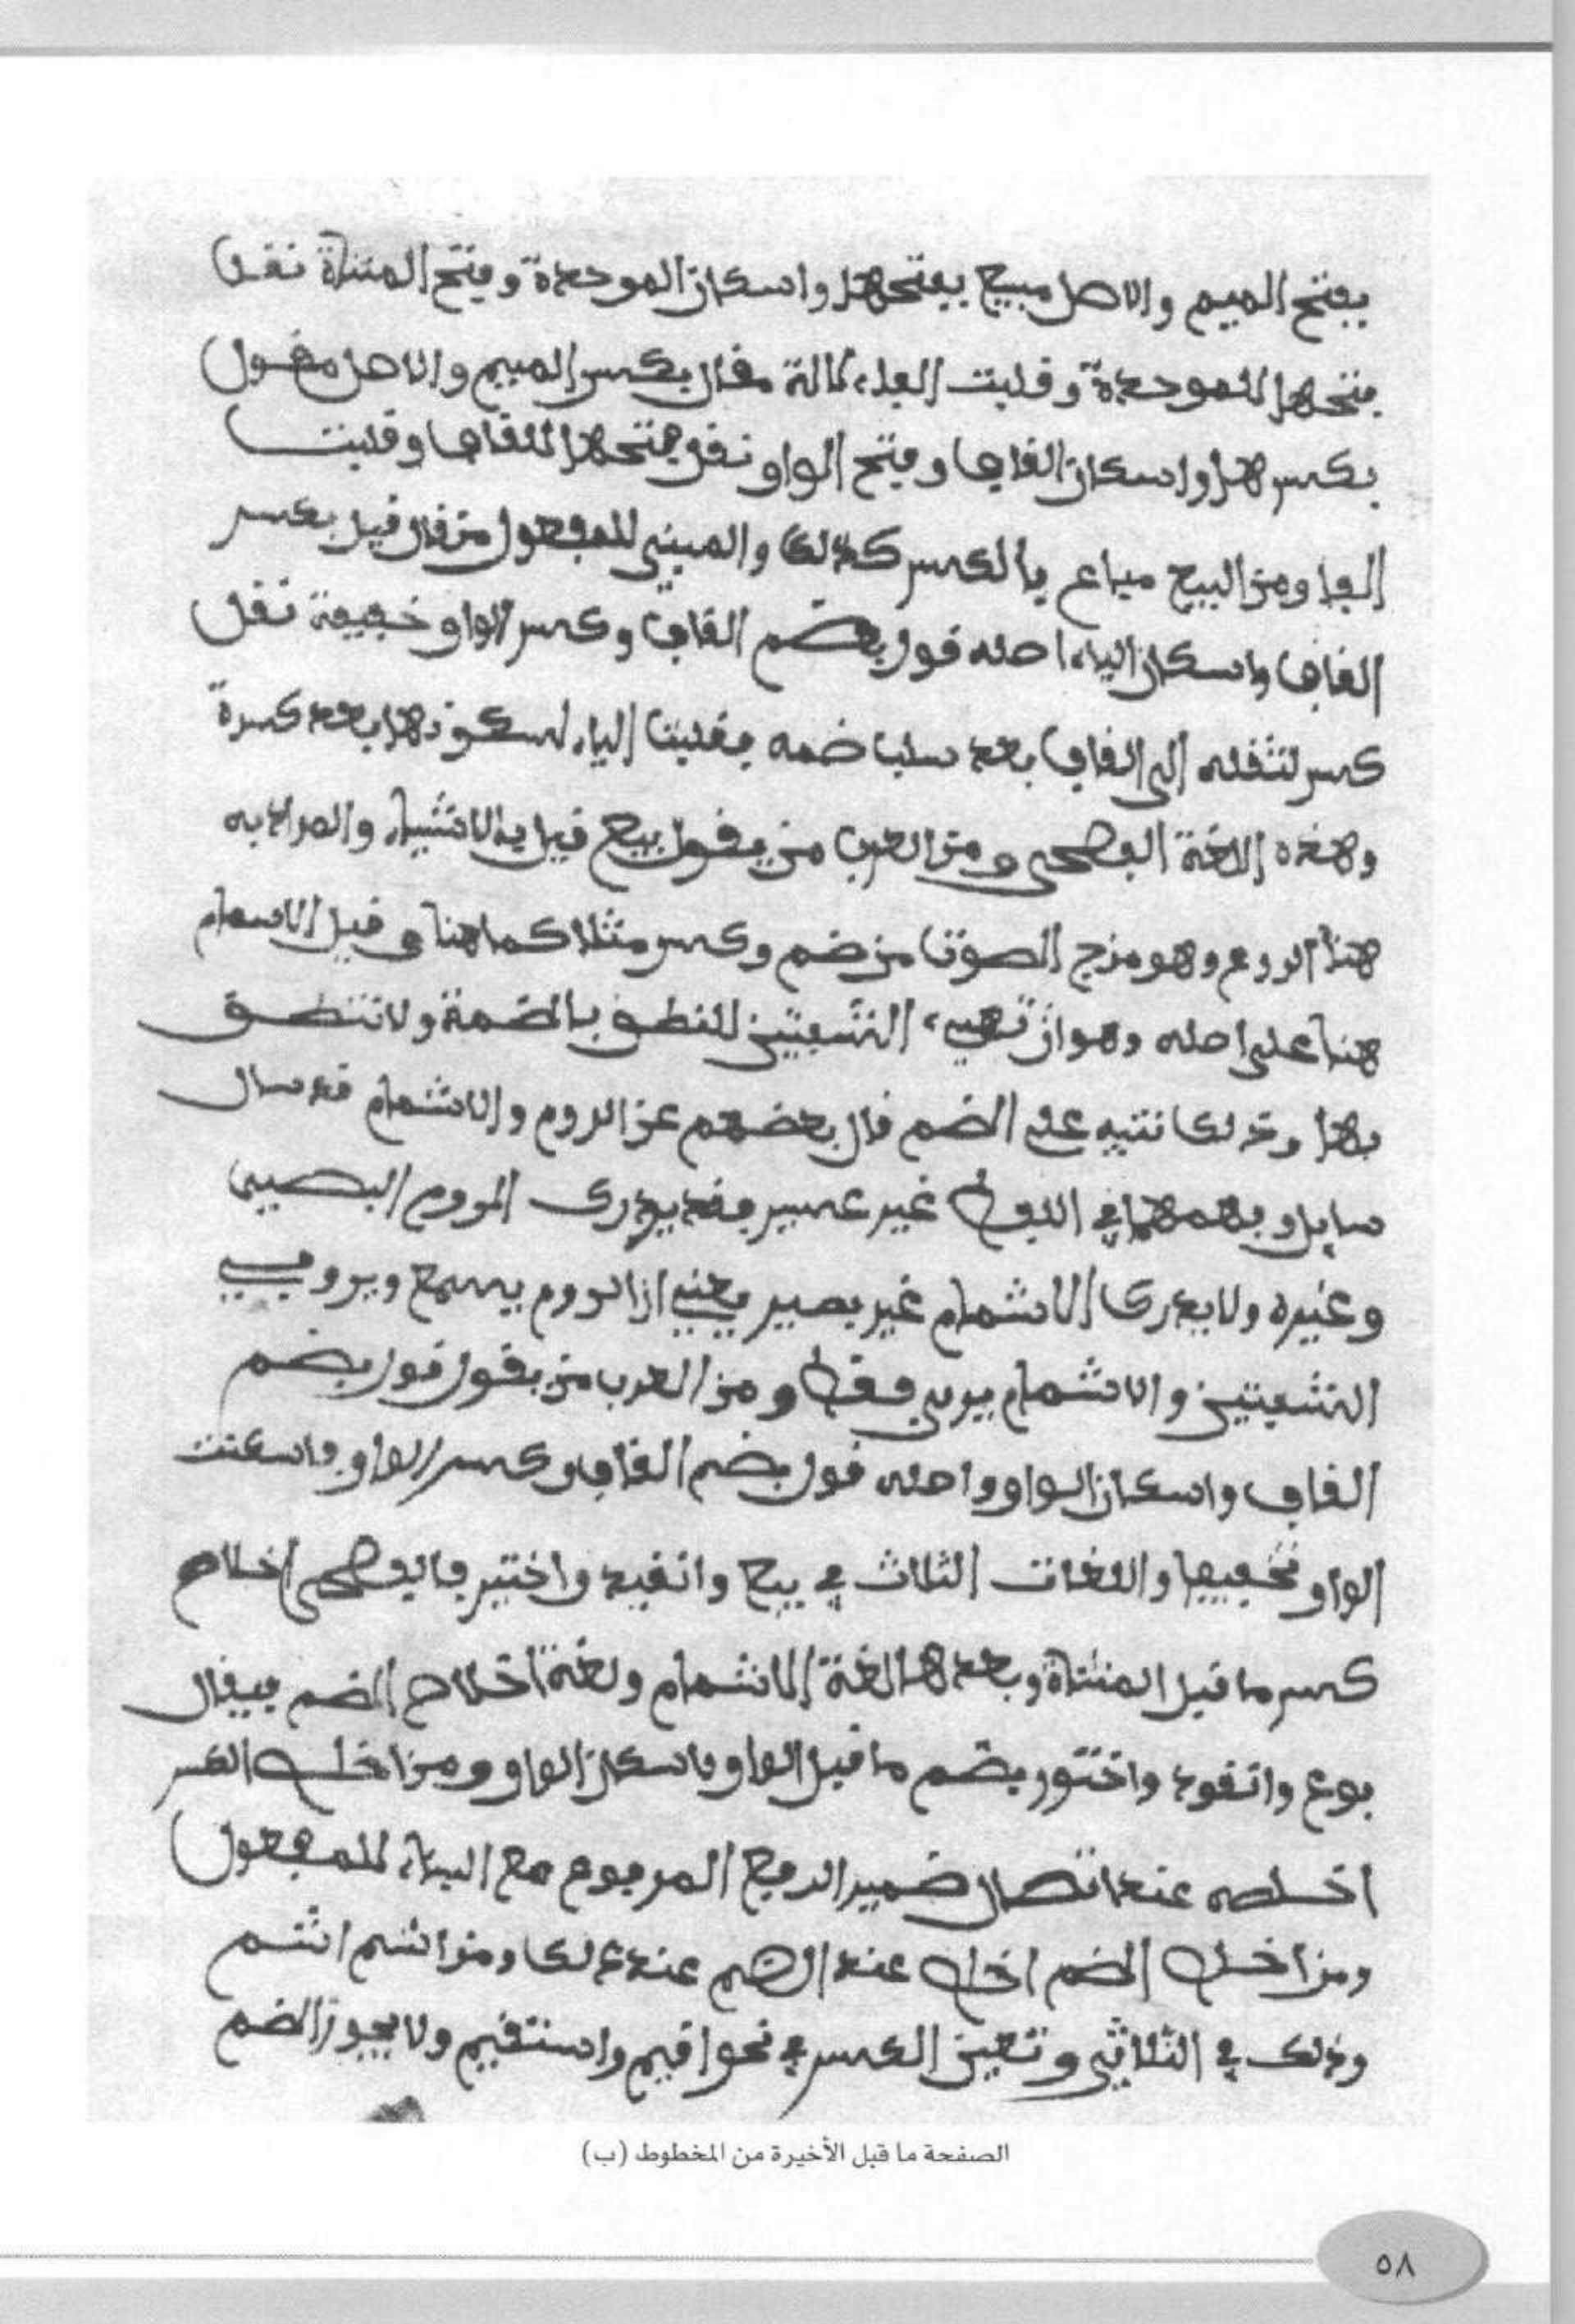 بفتح الميم والاصل مبيع بفتحها واسكان الموحدة وفتح المثناة نقل
فتحها للموحدة وقلبت الفا، لالة مقال بكسر الميم والاصل مقول
بكسرها واسكان القاف وفتح الواو نقل فتحها للقاف وقلبت
الفا ومن البيع مباع بالكسر كذلك والمبني للمفعول من قال قيل بكسر
القاف واسكان الياء اصله قول بضم القاف وكسر الواو خفيفة نقل
كسر لثقله الى القاف بعد سلب ضمه فقلبت الياء لسكونها بعد كسرة
وهذه اللغة الفصحى ومن العرب من يقول بيع قيل بالاشياء والمراد به
هنا الروم وهو مزج الصوت من ضم وكسر مثلا كما هنا وقيل الاسمام
هنا على اصله وهو ان تهيء الشفتين للنطق بالضمة ولا تنطق
بها وترلك تنبيه على الضم قال بعضهم عن الروم والاشمام قد سال
سايل وبهمهما في اللفظ غير عسير فقد يدرك الروم البصير
وغيره ولا يدرك الاشمام غير بصير يعني ان الروم يسمع ويرو في
الشفتين والاشمام يرى فقط ومن العرب من يقول قول بضم
القاف واسكان الواو واصله قول بضم القاف وكسر الواو فاسكنت
الواو تخفيفا واللغات الثلاث في بيع وانقيد واختير فالفصحى اخلاص
كسر ما قبل المثناة وبعدها لغة الاشمام ولغة اخلاص الضم فيقال
بوع وانقود واختور بضم ما قبل الواو فاسكان الواو ومن اخلص الكسر
اخلصه عند اتصال ضمير الرفع المرفوع مع البناء للمفعول
ومن اخلص الضم اخلص عند الضم عند ذلك ومن اشم اشم
وذلك في الثلاثي وتعين الكسر في نحو اقيم واستقيم ولا يجوز الضم
الصفحة ما قبل الأخيرة من المخطوط (ب)
٥٨